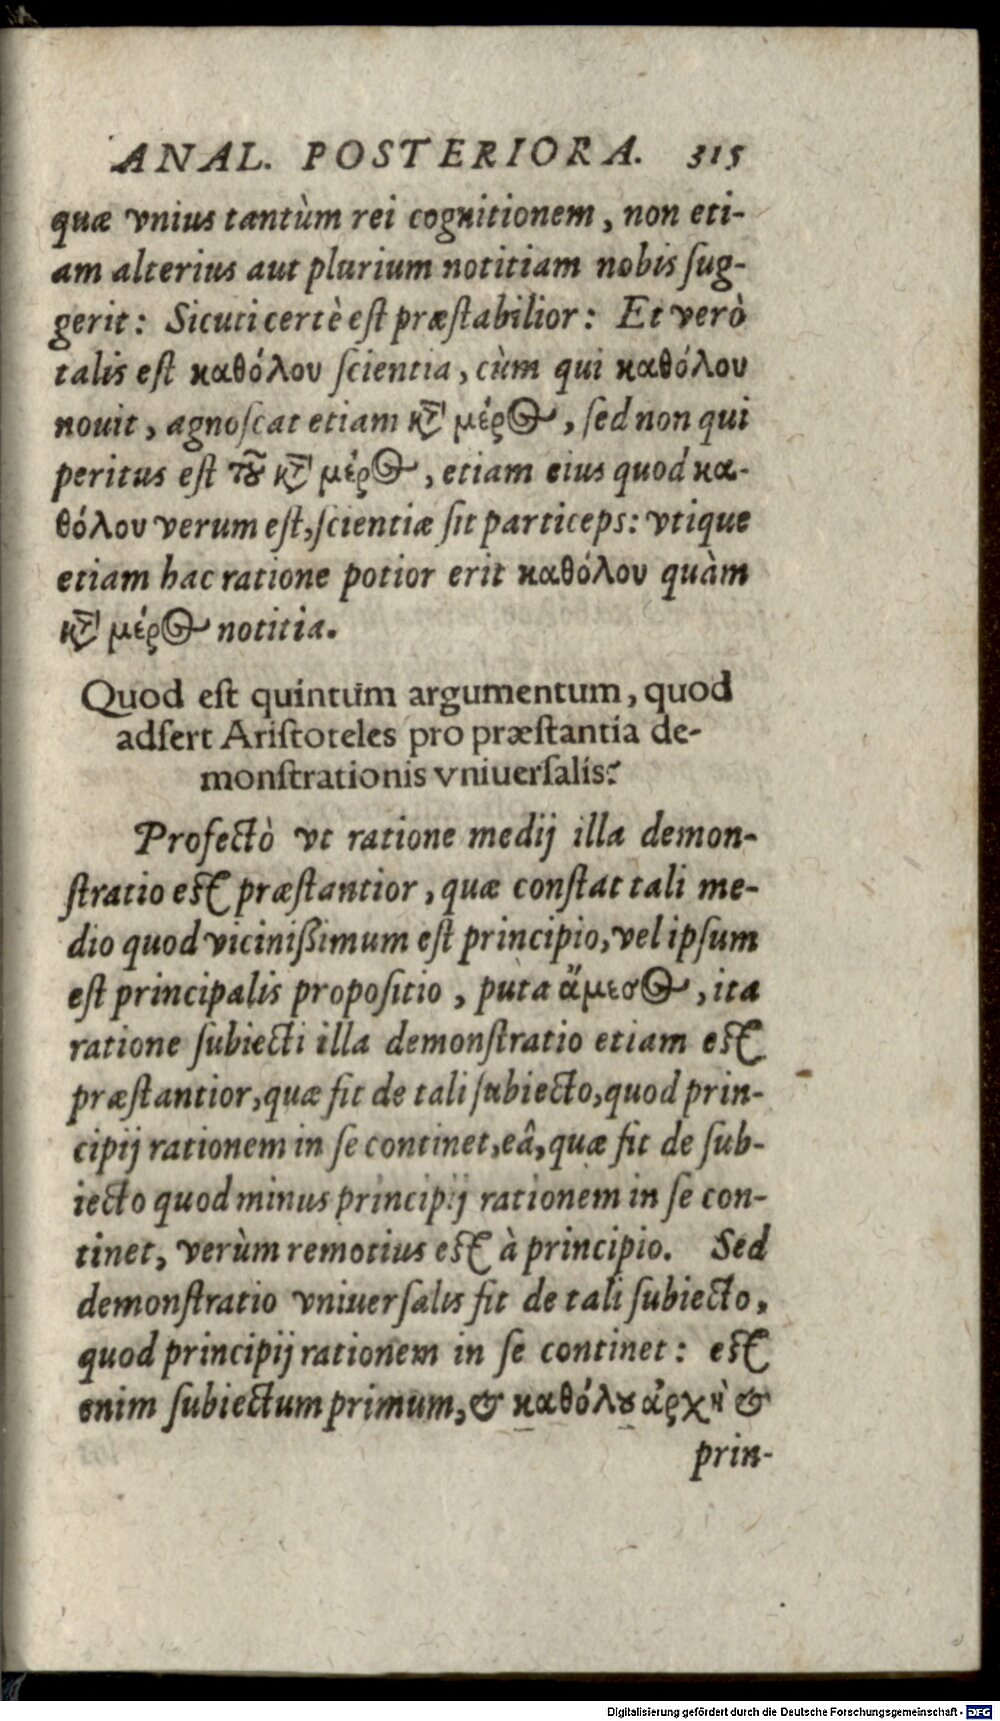 ANAL. POSTERIORA. 315
quæ vnius tantùm rei cognitionem, non eti-
am alterius aut plurium notitiam nobis ſug-
gerit: Sicuti certè eſt præſtabilior: Et verò
talis eſt καθόλου ſcientia, cùm qui καθόλου
nouit, agnoſcat etiam κτ̀ μέρος, ſed non qui
peritus eſt τȣ͂ κτ̀ μέρος, etiam eius quod κα-
θόλου verum eſt, ſcientiæ ſit particeps: vtique
etiam hac ratione potior erit καθόλου quàm
κτ̀ μέρος notitia.
Quod eſt quintum argumentum, quod
adfert Ariſtoteles pro præſtantia de-
monſtrationis vniuerſalis?
Profectò vt ratione medij illa demon-
ſtratio eſt præſtantior, quæ conſtat tali me-
dio quod vicinißimum eſt principio, vel ipſum
eſt principalis propoſitio, puta ἄμεσος, ita
ratione ſubiecti illa demonſtratio etiam eſt
præſtantior, quæ fit de tali ſubiecto, quod prin-
cipij rationem in ſe continet, eâ, quæ fit de ſub-
iecto quod minus principij rationem in ſe con-
tinet, verùm remotius eſt à principio. Sed
demonſtratio vniuerſalis fit de tali ſubiecto,
quod principij rationem in ſe continet: eſt
enim ſubiectum primum, & καθόλȣ ἀρχὴ &
prin-
Digitalisierung gefördert durch die Deutsche Forschungsgemeinschaft - DFG